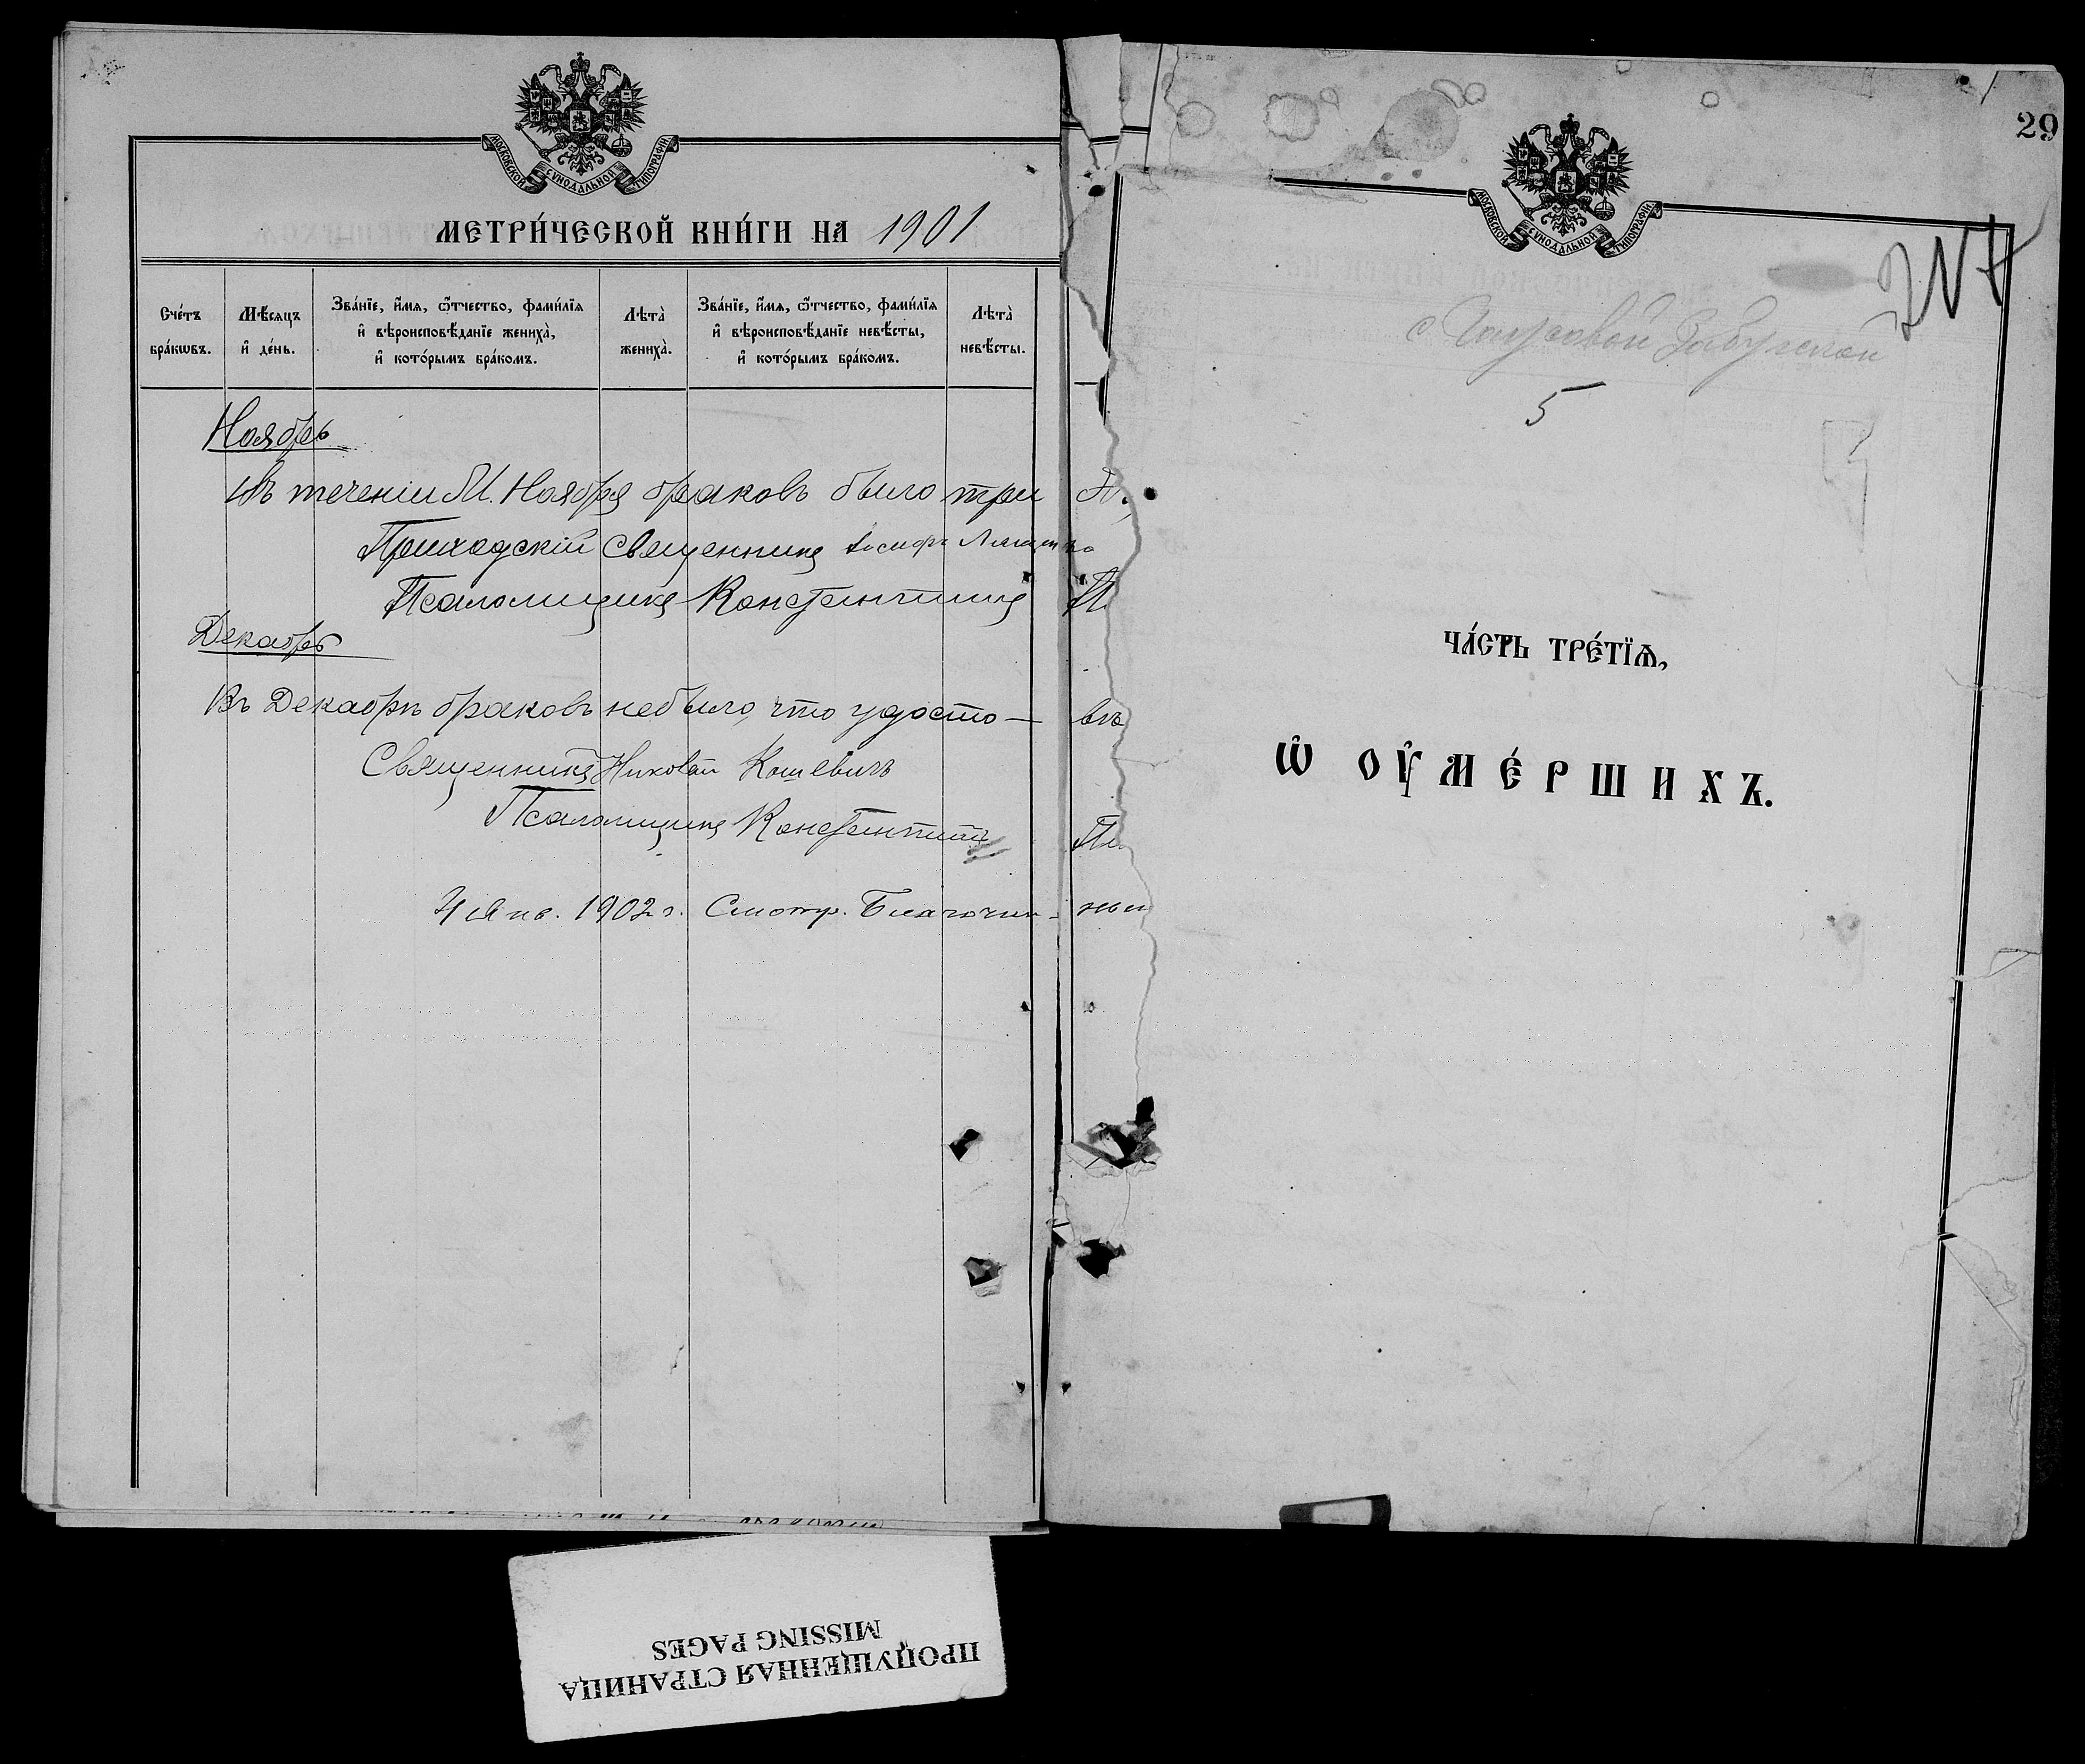 МОСКОВСКОЙ СѴНОДАЛЬНОЙ ТИПОГРАФІИ
МЕТРИ́ЧЕСКОЙ КНИ́ГИ НА 1901
Сче́тъ бра́кѡвъ.
Мѣ́сяцъ и҆ де́нь.
Зва́нїе, и҆́мя, ѻ҆́тчество, фами́лїя и҆ вѣроисповѣ́данїе жениха̀, и҆ кото́рымъ бра́комъ.
Лѣта̀ жениха̀.
Зва́нїе, и҆́мя, ѻ҆́тчество, фами́лїя и҆ вѣроисповѣ́данїе невѣ́сты, и҆ кото́рымъ бра́комъ.
Лѣта̀ невѣ́сты.
Ноябрь
Въ теченіи М. Ноября браковъ было три
Приходскій Священникъ Іосифъ
Псаломщикъ Константинъ
Декабрь
Въ Декабрѣ браковъ небыло, что удосто—
Священникъ Николай Кошевичъ
Псаломщикъ Константинъ
4 Янв. 1902 г. Смотр. Благочин-
ны
29
МОСКОВСКОЙ СѴНОДАЛЬНОЙ ТИПОГРАФІИ
с.
5
ЧА́СТЬ ТРЕ́ТЇѦ,
Ѡ҆ ОУ҆МЕ́РШИХЪ.
ПРОПУЩЕННАЯ СТРАНИЦА
MISSING PAGES